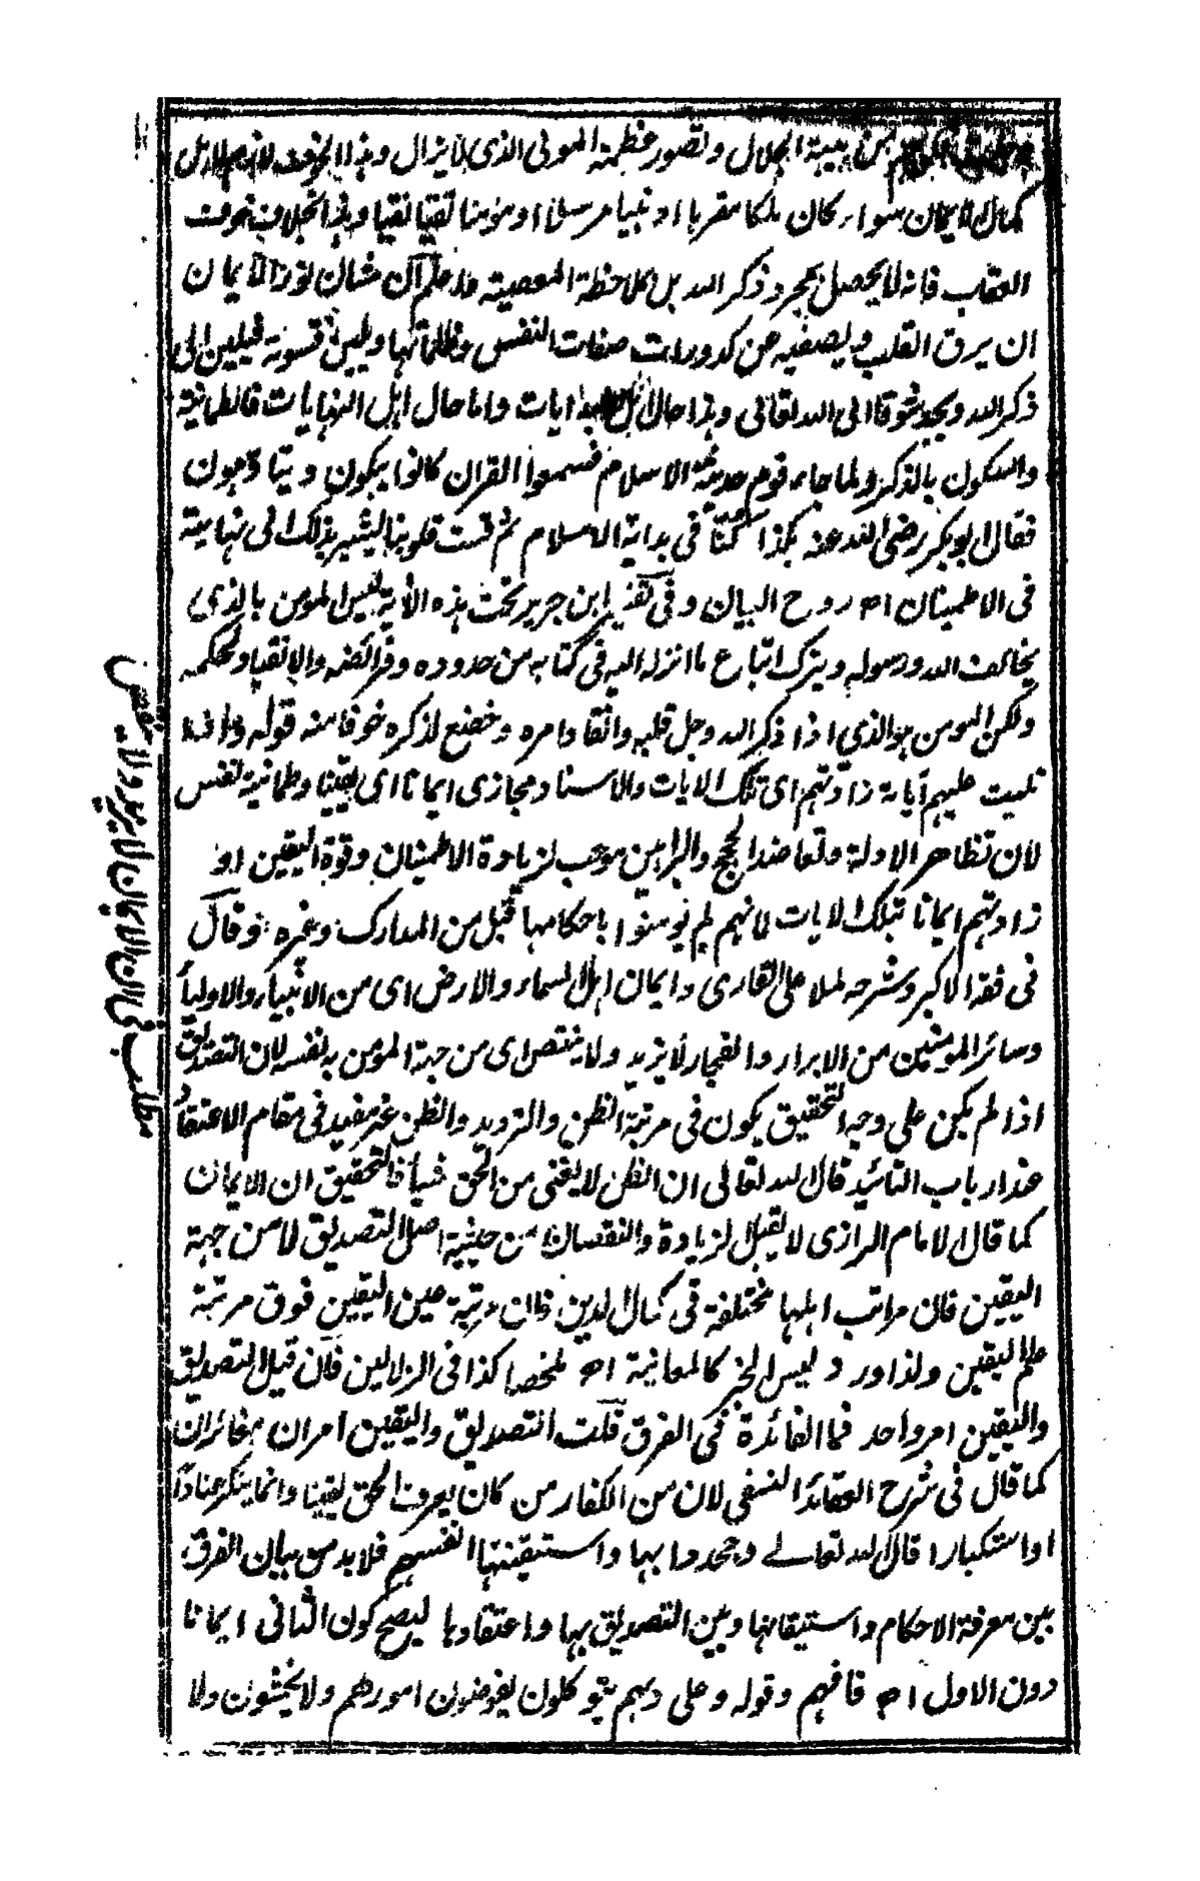 من هيبة الجلال وتصور عظمة المولى الذى لا يزال وهذا الخوف لازم لاهل
كمال الايمان سواء كان ملكا مقربا او نبيا مرسلا او مؤمنا تقيا نقيا وهذا بخلاف خوف
العقاب فانه لا يحصل بمجرد ذكر الله بل بملاحظة المعصية واعلم ان شان نور الايمان
ان يرق القلب ويصفيه عن كدورات صفات النفس وظلماتها ويلين قسوته فيلين الى
ذكر الله ويجد شوقا الى الله تعالى وهذا حال اهل البدايات واما حال اهل النهايات فالطمانية
والسكون بالذكر ولما جاء قوم حديثة الاسلام فسمعوا القران كانوا يبكون ويتاوهون
فقال ابو بكر رضى الله عنه هكذا كنا فى بداية الاسلام ثم قست قلوبنا ليشير بذلك الى نهايته
فى الاطمينان اه روح البيان وفى تفسير ابن جرير تحت هذه الاية ليس المومن بالذى
يخالف الله ورسوله ويترك اتباع ما انزله اليه فى كتابه من حدوده وفرائضه والانقياد لحكمه
ولكن المومن هو الذي اذا ذكر الله وجل قلبه وانقاد امره وخضع لذكره خوفا منه قوله واذا
تليت عليهم آياته زادتهم اى تلك الايات والاسناد مجازى ايمانا اى يقينا وطمانية نفس
لان تظاهر الادلة وتعاضد الحجج والبراهين موجب لزيادة الاطمينان وقوة اليقين او
زادتهم ايمانا بتلك الايات لانهم لم يؤمنوا باحكامها قبل من المدارك وغيره وقال
فى فقه الاكبر وشرحه لملا على القارى وايمان اهل السماء والارض اى من الانبياء والاولياء
وسائر المومنين من الابرار والفجار لا يزيد ولا ينتقص اى من جهة المومن به نفسه لان التصديق
اذا لم يكن على وجه التحقيق يكون فى مرتبة الظن والترديد والظن غير مفيد فى مقام الاعتقاد
عند ارباب التائيد قال الله تعالى ان الظن لا يغنى من الحق شيأ فالتحقيق ان الايمان
كما قال الامام الرازى لا يقبل الزيادة والنقصان من حيثية اصل التصديق لا من جهة
اليقين فان مراتب اهلها مختلفة فى كمال الدين فان مرتبة عين اليقين فوق مرتبة
علم اليقين ولذا ورد ليس الخبر كالمعاينة اه ملخصا كذا فى الزلالين فان قيل التصديق
واليقين امر واحد فما الفائدة فى الفرق قلت التصديق واليقين امران مغائران
كما قال فى شرح العقائد النسفي لان من الكفار من كان يعرف الحق يقينا وانما ينكر عنادا
او استكبارا قال الله تعالى وجحدوا بها واستيقنتها انفسهم فلابد من بيان الفرق
بين معرفة الاحكام واستيقانها وبين التصديق بها واعتقادها ليصح كون الثانى ايمانا
دون الاول اه فافهم وقوله وعلى ربهم يتوكلون يفوضون امورهم ولا يخشون ولا
مطلب فى ان الايمان لا يزيد ولا ينقص